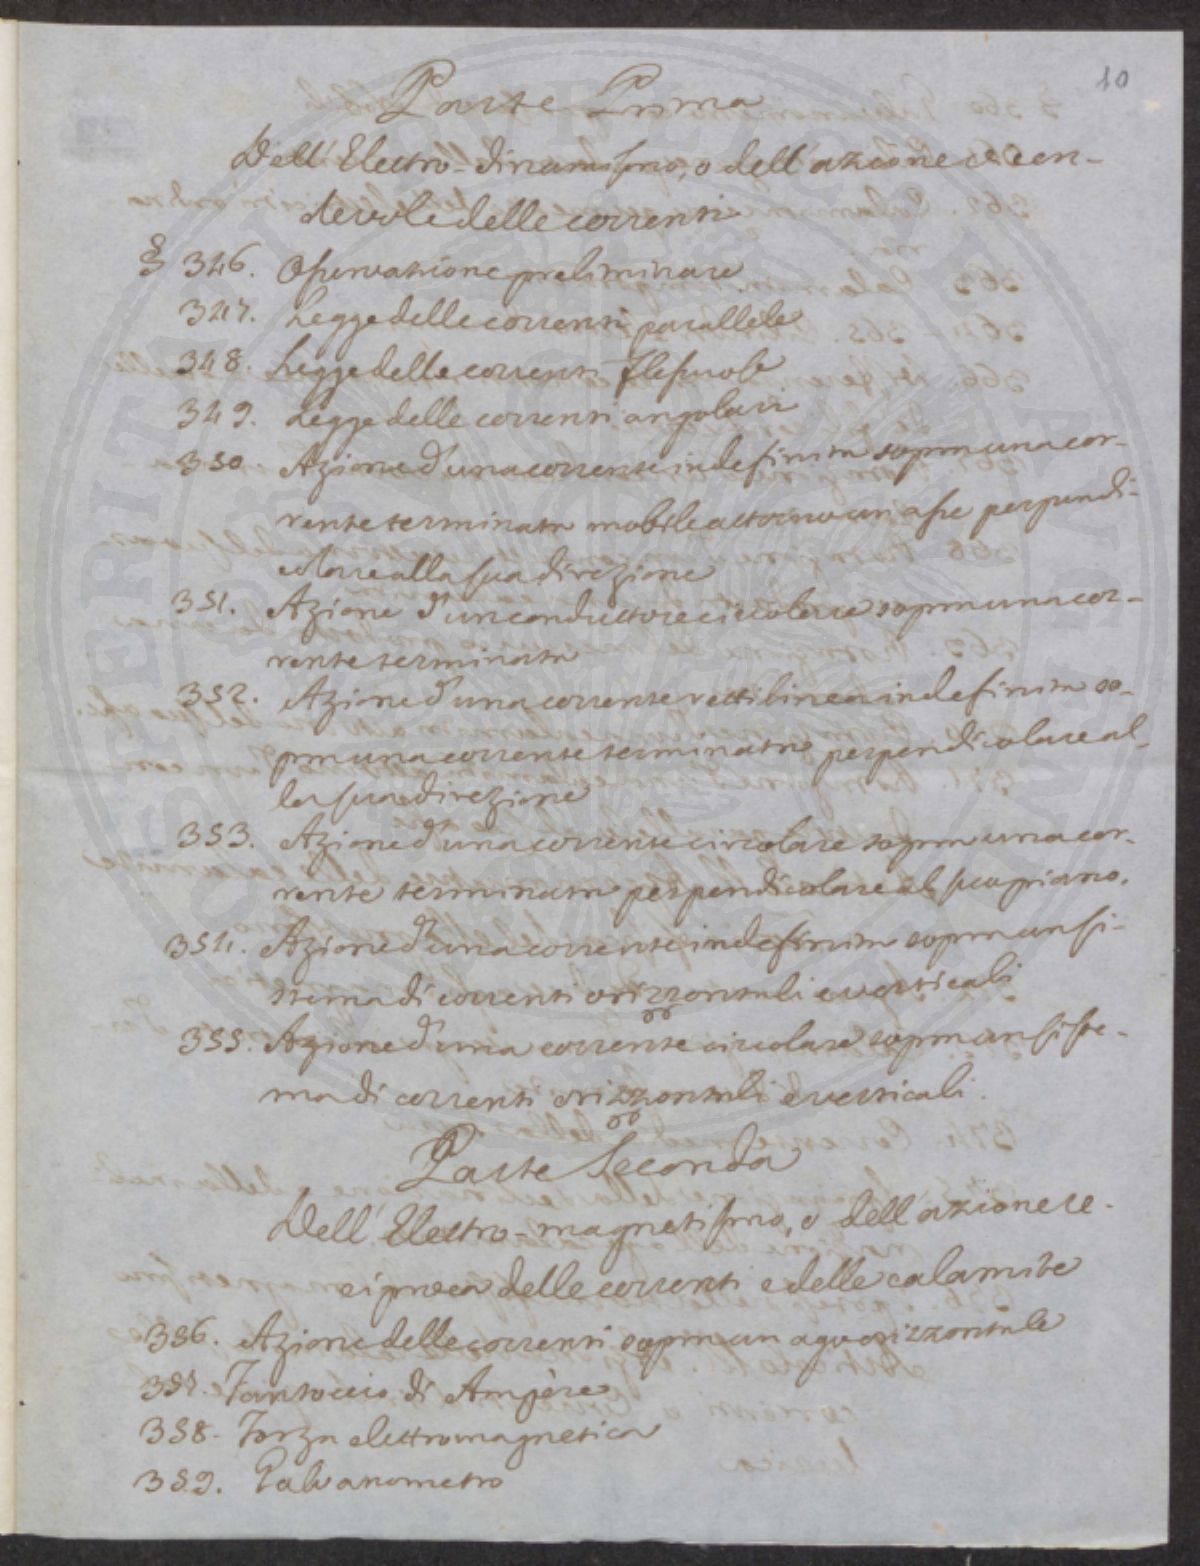 10
Parte Prima
Dell'Elettro-dinamismo, o dell'azione ecen-
devole delle correnti
§ 346. Osservazione preliminare
347. Legge delle correnti parallele
348. Legge delle correnti flessuose
349. Legge delle correnti angolari
350. Azione d'una corrente indefinita sopra una cor-
rente terminata mobile attorno un asse perpendi-
colare alla sua direzione
351. Azione d'un conduttore circolare sopra una cor-
rente terminata
352. Azione d'una corrente rettilinea indefinita so-
pra una corrente terminata perpendicolare al-
la sua direzione
353. Azione d'una corrente circolare sopra una cor-
rente terminata perpendicolare al suo piano.
354. Azione d'una corrente indefinita sopra un si-
stema di correnti orizzontali e verticali
355. Azione d'una corrente circolare sopra un siste-
ma di correnti orizzontali e verticali.
Parte Seconda
Dell'Elettro-magnetismo, o dell'azione re-
ciproca delle correnti e delle calamite
356. Azione delle correnti sopra un ago orizzontale
357. Fantoccio di Ampère
358. Forza elettromagnetica
359. Galvanometro